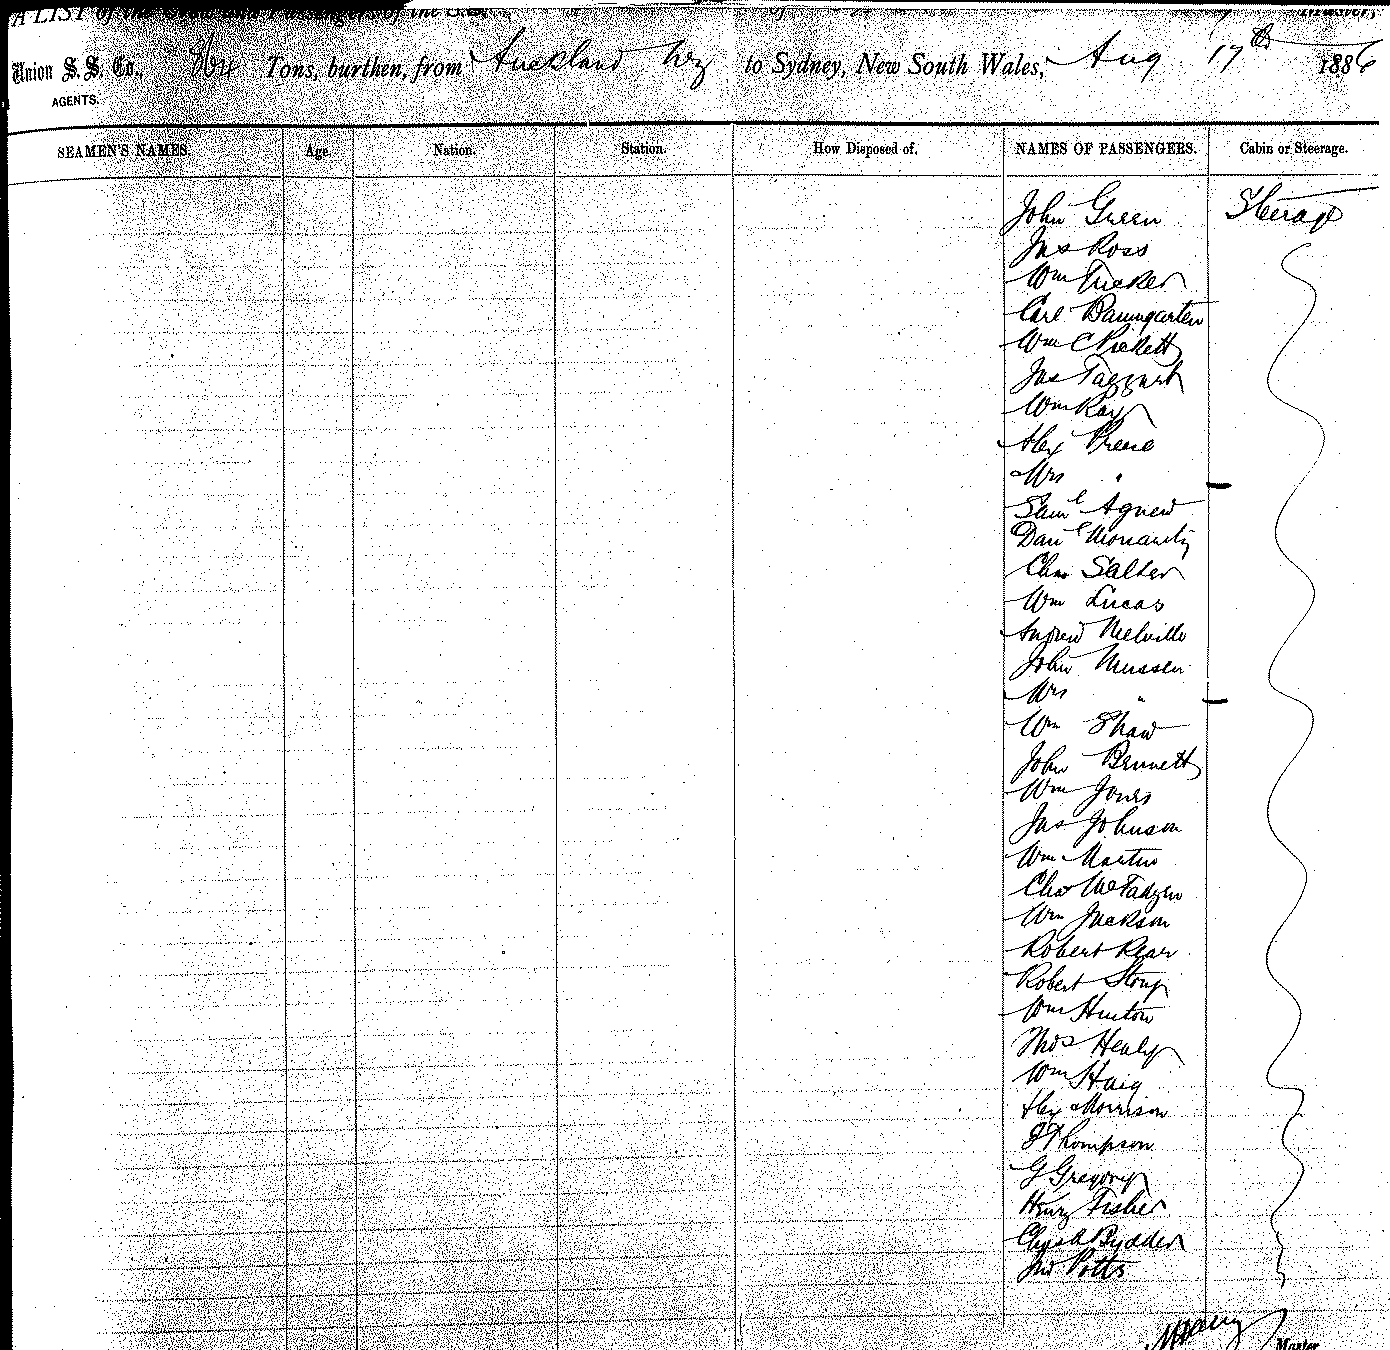 A LIST of the Crew and Passengers of the S.S.
Union S. S. Co., Tons, burthen, from Auckland NZ to Sydney, New South Wales, Aug 17th 1886
AGENTS.
SEAMEN'S NAMES. Age. Nation. Station. How Disposed of. NAMES OF PASSENGERS. Cabin or Steerage.
John Green Steerage
Jas Ross
Wm Tucker
Carl Baumgarten
Wm C Pickett
Jas Taggart
Wm Kay
Alex Preece
Mrs "
Saml Agnew
Danl Moriarity
Chas Salter
Wm Lucas
Andrew Melville
John Musson
Mrs "
Wm Shaw
John Bennett
Wm Jones
Jas Johnson
Wm Martin
Chas McFadyen
Wm Jackson
Robert Rear
Robert Stony
Wm Hunton
Thos Healy
Wm Haig
Alex Morrison
J Thompson
G Gregory
Henry Fisher
Chas A Bydder
Jno Potts
Master